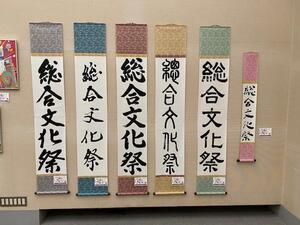 総合文化祭
総合文化祭
総合文化祭
總合文化祭
総合文化祭
総合文化祭